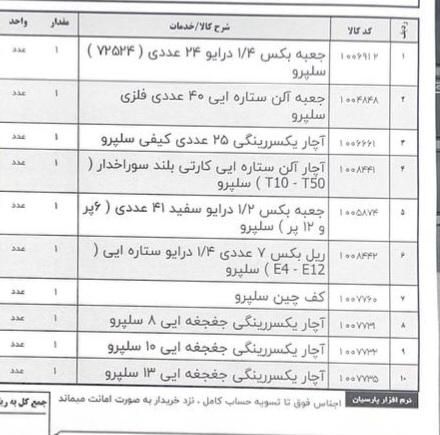 ردیف کد کالا شرح کالا/خدمات مقدار واحد
۱ ۱۰۰۶۹۱۲ جعبه بکس ۱/۴ درایو ۲۴ عددی ( ۷۲۵۲۴ ) سلپرو ۱ عدد
۲ ۱۰۰۴۸۴۸ جعبه آلن ستاره ایی ۴۰ عددی فلزی سلپرو ۱ عدد
۳ ۱۰۰۶۶۶۱ آچار یکسررینگی ۲۵ عددی کیفی سلپرو ۱ عدد
۴ ۱۰۰۸۴۴۱ آچار آلن ستاره ایی کارتی بلند سوراخدار ( T10 - T50 ) سلپرو ۱ عدد
۵ ۱۰۰۵۸۷۴ جعبه بکس ۱/۲ درایو سفید ۴۱ عددی ( ۶پر و ۱۲ پر ) سلپرو ۱ عدد
۶ ۱۰۰۸۴۴۲ ریل بکس ۷ عددی ۱/۴ درایو ستاره ایی ( E4 - E12 ) سلپرو ۱ عدد
۷ ۱۰۰۷۷۶۰ کف چین سلپرو ۱ عدد
۸ ۱۰۰۷۷۳۱ آچار یکسررینگی جغجغه ایی ۸ سلپرو ۱ عدد
۹ ۱۰۰۷۷۳۲ آچار یکسررینگی جغجغه ایی ۱۰ سلپرو ۱ عدد
۱۰ ۱۰۰۷۷۳۵ آچار یکسررینگی جغجغه ایی ۱۳ سلپرو ۱ عدد
نرم افزار پارسیان اجناس فوق تا تسویه حساب کامل ، نزد خریدار به صورت امانت میماند جمع کل به